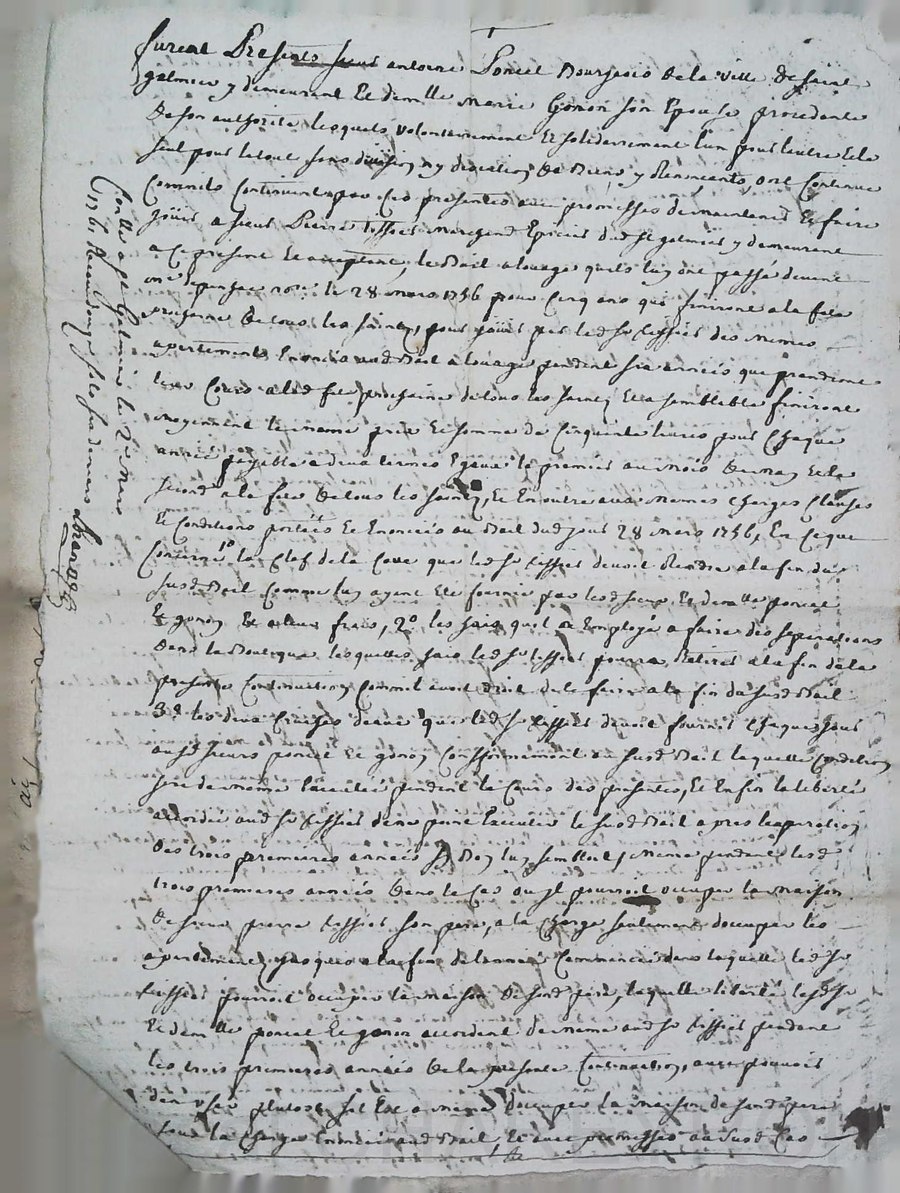 furent Presents sieur antoine Poncet Bourgeois de la ville de saint
galmier y demeurant Et demlle Marie Gonon son Epouse procedante
de son authorité lesquels volontairement Et solidairement l'un pour l'autre Et le
seul pour le tout sans division ny discution de Biens y Renonceants, ont Continué
Comme ils Continuent par Ces presentes avec promesses de maintenir Et faire
jouir a sieur Pierre tissier Marchand Epicier dud st galmier y demeurant
a ce present Et acceptant, le Bail a louage quils luy ont passé devant
me nore le 28 Mars 1756 pour Cinq ans qui finiront a la fete
prochaine de tous les saints, pour jouir par led sr tissier des Memes
apartements Enoncés aud Bail a louage pendant six années qui prendront
leur Cours a lad fete prochaine de tous les saints Et a semblable finiront
moyennant le meme prix Et somme de Cinquante livres pour Chaque
année payable a deux termes Egaux le premier au Mois de may Et le
second a la fete de tous les saints, Et En outre aux Memes Charges Clauses
Et Conditions portées Et Enoncées au Bail dud jour 28 Mars 1756, En Ce que
Concerne 1o la Clef de la Cave que led sr tissier devoit Rendre a la fin du
susd Bail Comme luy ayant Eté fournie par lesd sieur Et demlle poncet
Et gonon Et a leur frais, 2o les hais quil a Employé a faire des separations
dans la Boutique lesquelles hais led sr tissier pourra Retirer a la fin de la
presente Continuation Comme il avoit droit de le faire a la fin du susd Bail
3o les deux d'eau que led sr tissier devoit fournir Chaque jour
auxd sieurs poncet Et gonon Conformement au susd Bail laquelle Condition
sera de meme Executée pendant le Cours des presentes, Et Enfin la liberté
accordée aud sr tissier de ne point Executer le susd Bail apres l'expiration
des trois premieres années si Bon luy sembloit, Meme pendant lesd
trois premieres années dans le Cas ou il pourroit occuper la Maison
de sieur pierre tissier son pere, a la Charge seulement d'occuper les
apartements jusques a la fin de l'année Commencée dans laquelle led sr
tissier pourroit occuper la Maison de sond pere, laquelle liberté lesd sr
Et demlle poncet Et gonon accordent de meme aud sr tissier pendant
les trois premieres années de la presente Continuation, avec pouvoir
d'en user plutost sil Est a meme d'occuper la maison de sond pere
sous la Charge Enoncée aud Bail Et avec promesses au susd Cas
Conlle a st Galmier le 2 Mars
1761